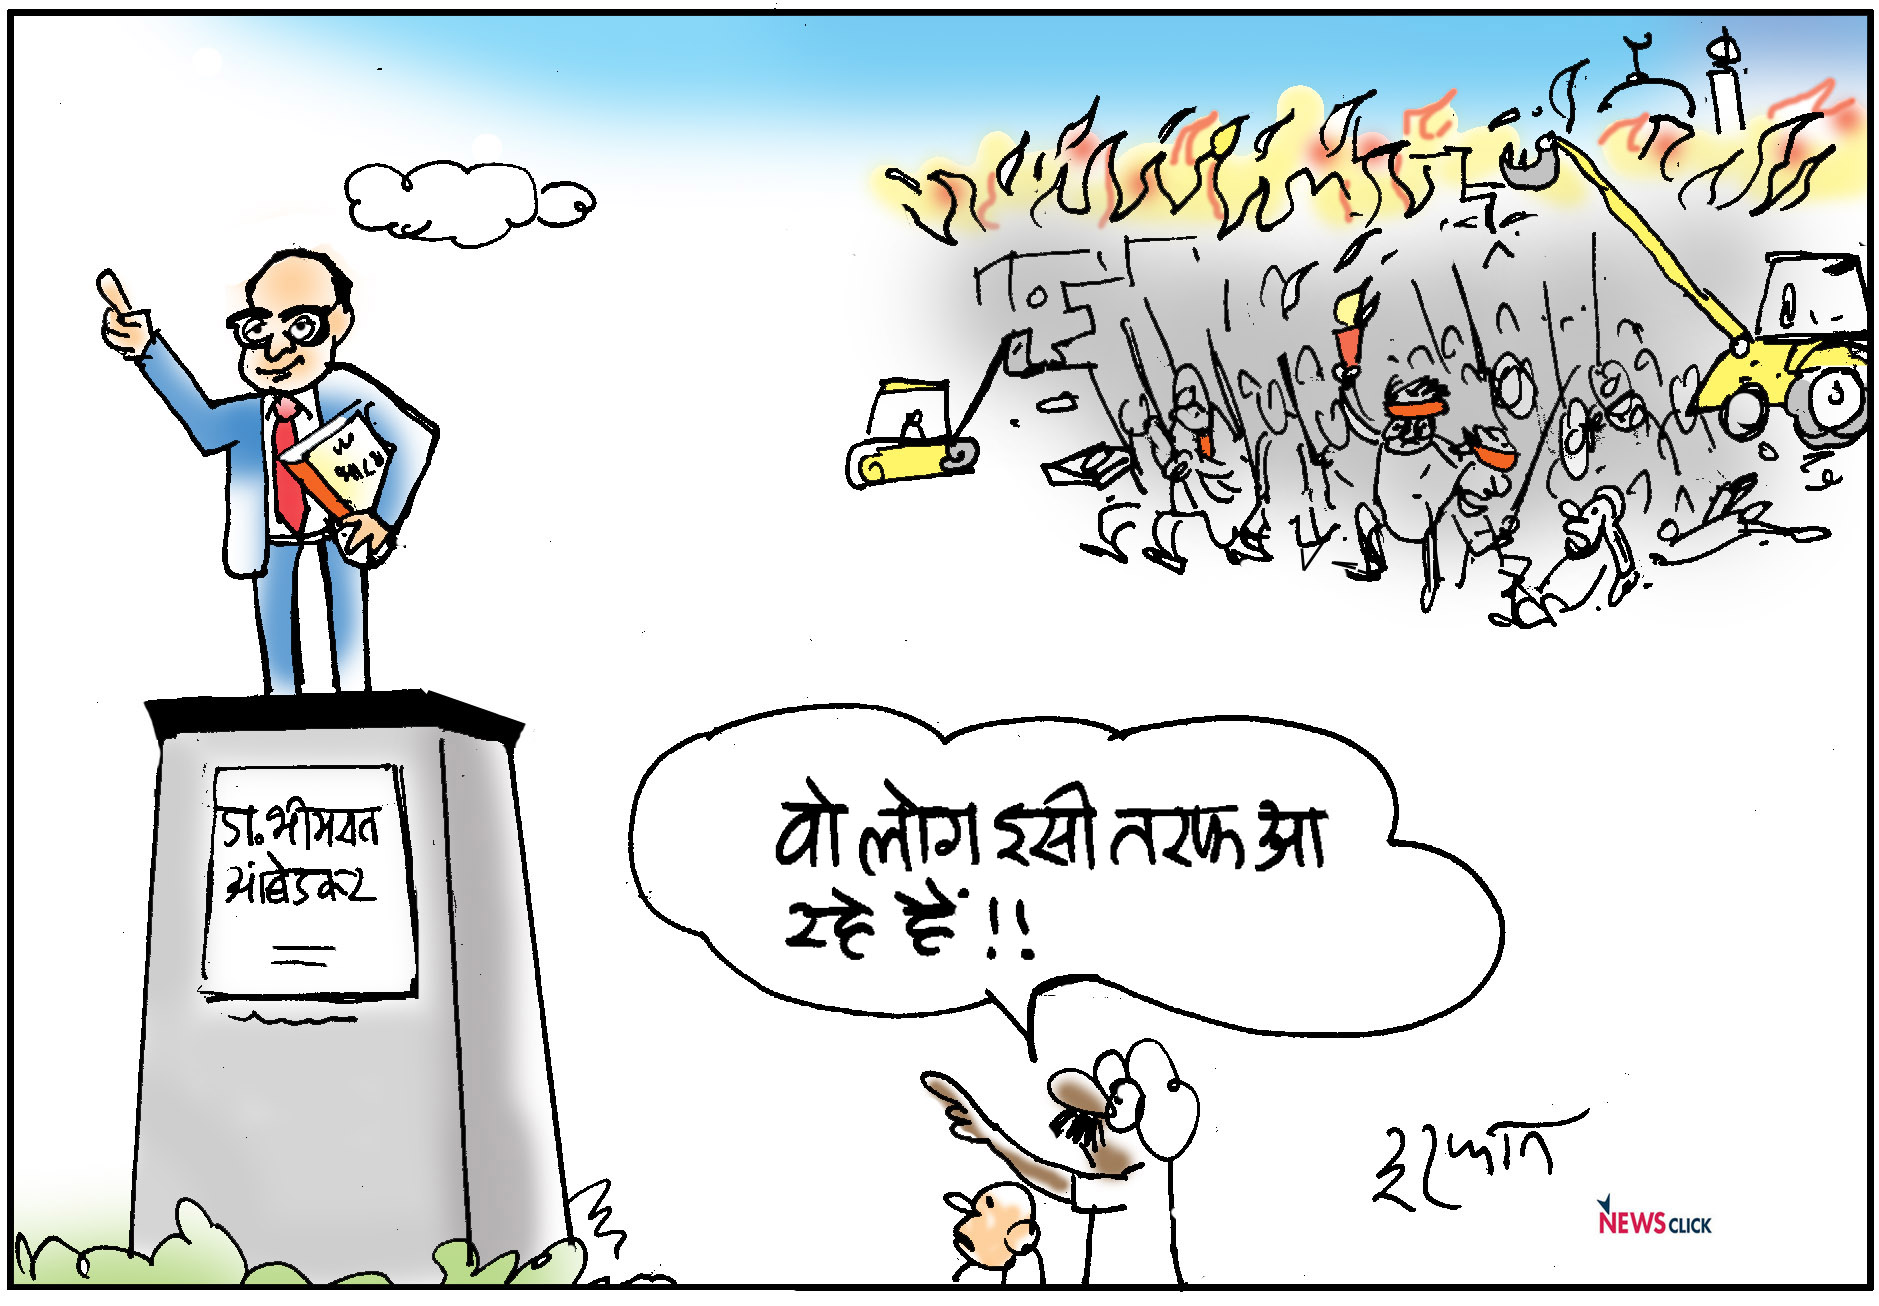 डा. भीमराव
अांबेडकर
वो लोग इसी तरफ आ
रहे हैं !!
इरफान
NEWSCLICK